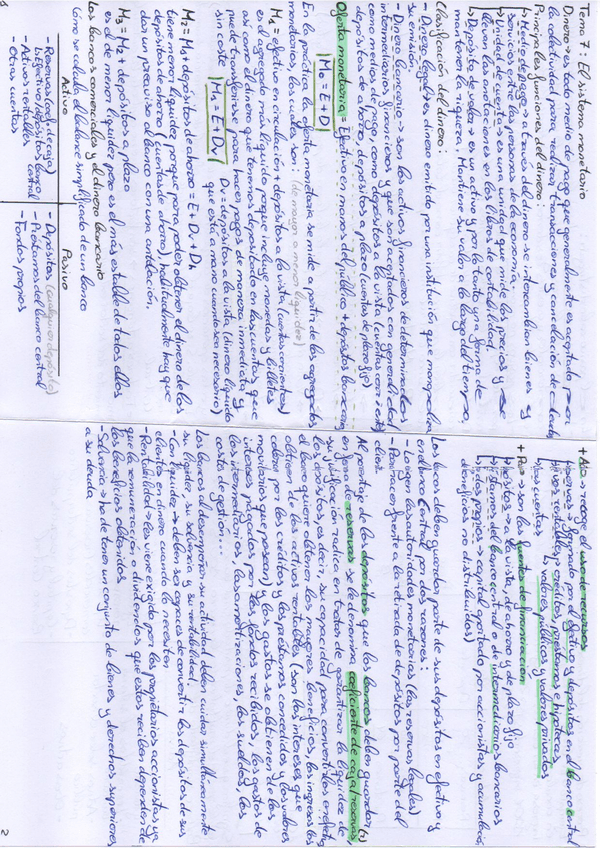 Tema 7: El sistema monetario
Dinero → es todo medio de pago que generalmente es aceptado para
la colectividad para realizar transacciones y cancelación de deudas
Principales funciones del dinero:
↳ Medio de pago → a través del dinero se intercambian bienes y
servicios entre las personas de la economía.
↳ Unidad de cuenta → es una unidad que mide los precios y se
llevan las anotaciones en los libros de contabilidad.
↳ Depósito de valor → es un activo y por lo tanto una forma de
mantener la riqueza. Mantiene su valor a lo largo del tiempo.
Clasificación del dinero:
- Dinero legal → es dinero emitido por una institución que monopoliza
su emisión.
- Dinero bancario → son los activos financieros de determinados
intermediarios financieros y que son aceptados con generalidad
como medios de pago, como depósitos a la vista (cuentas corrientes),
depósitos de ahorro, depósitos a plazo (cuentas de plazo fijo)
Oferta monetaria = Efectivo en manos del público + depósitos bancarios
M₀ = E + D
En la práctica la oferta monetaria se mide a partir de los agregados
monetarios, los cuales son: (de mayor a menor liquidez)
M₁ = efectivo en circulación + depósitos a la vista (cuentas corrientes)
es el agregado más líquido porque incluye monedas y billetes
así como el dinero que tenemos depositado en las cuentas que
puede transferirse para hacer pagos de manera inmediata y
sin coste M₁ = E + Dv Dv → depósitos a la vista (dinero líquido
que está a mano cuando sea necesario)
M₂ = M₁ + depósitos de ahorro = E + Dv + Dh
tiene menor liquidez porque para poder obtener el dinero de los
depósitos de ahorro (cuentas de ahorro), habitualmente hay que
dar un preaviso al banco con una antelación.
M₃ = M₂ + depósitos a plazo
es el de menor liquidez pero es el más estable de todos ellos
Los bancos comerciales y el dinero bancario
Cómo se calcula el balance simplificado de un banco
Activo Pasivo
- Reservas (coef. de caja) - Depósitos (cualquier depósito)
↳ Efectivo/depósitos banco central - Préstamos del banco central
- Activos rentables - Fondos propios
- Otras cuentas
1
+ Activo → recoge el uso de recursos
Reservas → formado por el efectivo y depósitos en el banco central
Activos rentables → créditos, préstamos e hipotecas,
valores públicos y valores privados
Otras cuentas
+ Pasivo → son las fuentes de financiación
Depósitos → a la vista, de ahorro y de plazo fijo
Préstamos del banco central o de intermediarios bancarios
Fondos propios → capital aportado por accionistas y acumulado
(beneficios no distribuidos)
Los bancos deben guardar parte de sus depósitos en efectivo y
en el banco central por dos razones:
- Lo exigen las autoridades monetarias (las reservas legales)
- Para hacer frente a la retirada de depósitos por parte del
client.
Al porcentaje de los depósitos que los bancos deben guardar (1)
en forma de reservas se le denomina coeficiente de caja/reservas,
su justificación radica en tratar de garantizar la liquidez de
los depósitos, es decir, su capacidad para convertirlos en efectivo
El banco quiere obtener los márgenes beneficios, los ingresos los
obtienen de los activos rentables (son los intereses que
cobran por los créditos y los préstamos concedidos y los valores
monitorios que posean) y los gastos se obtienen de los
intereses pagados por los fondos recibidos, los gastos de
los intermediarios, las amortizaciones, los sueldos, los
costes de gestión...
Los bancos al desempeñar su actividad deben cuidar simultáneamente
su liquidez, su solvencia y su rentabilidad.
- Con liquidez → deben ser capaces de convertir los depósitos de sus
clientes en dinero cuando lo necesiten
- Rentabilidad → les viene exigido por los propietarios accionistas ya
que la remuneración o dividendos que estos reciban dependen de
los beneficios obtenidos.
- Solvencia → ha de tener un conjunto de bienes y derechos superiores
a su deuda
2